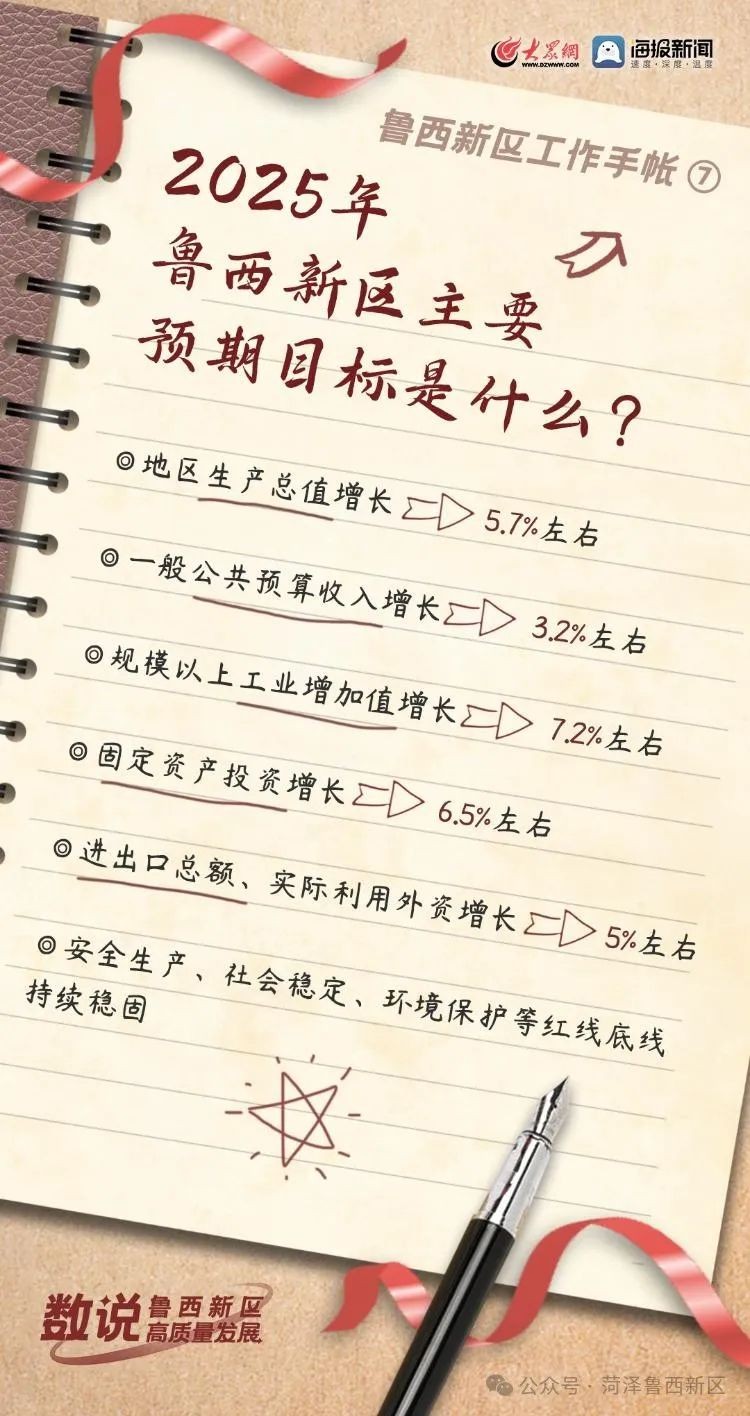 大众網
WWW.DZWWW.COM
海报新闻
速度·深度·温度
鲁西新区工作手帐⑦
2025年
鲁西新区主要
预期目标是什么？
◎地区生产总值增长 5.7%左右
◎一般公共预算收入增长 3.2%左右
◎规模以上工业增加值增长 7.2%左右
◎固定资产投资增长 6.5%左右
◎进出口总额、实际利用外资增长 5%左右
◎安全生产、社会稳定、环境保护等红线底线
持续稳固
数说 鲁西新区
高质量发展
公众号·菏泽鲁西新区